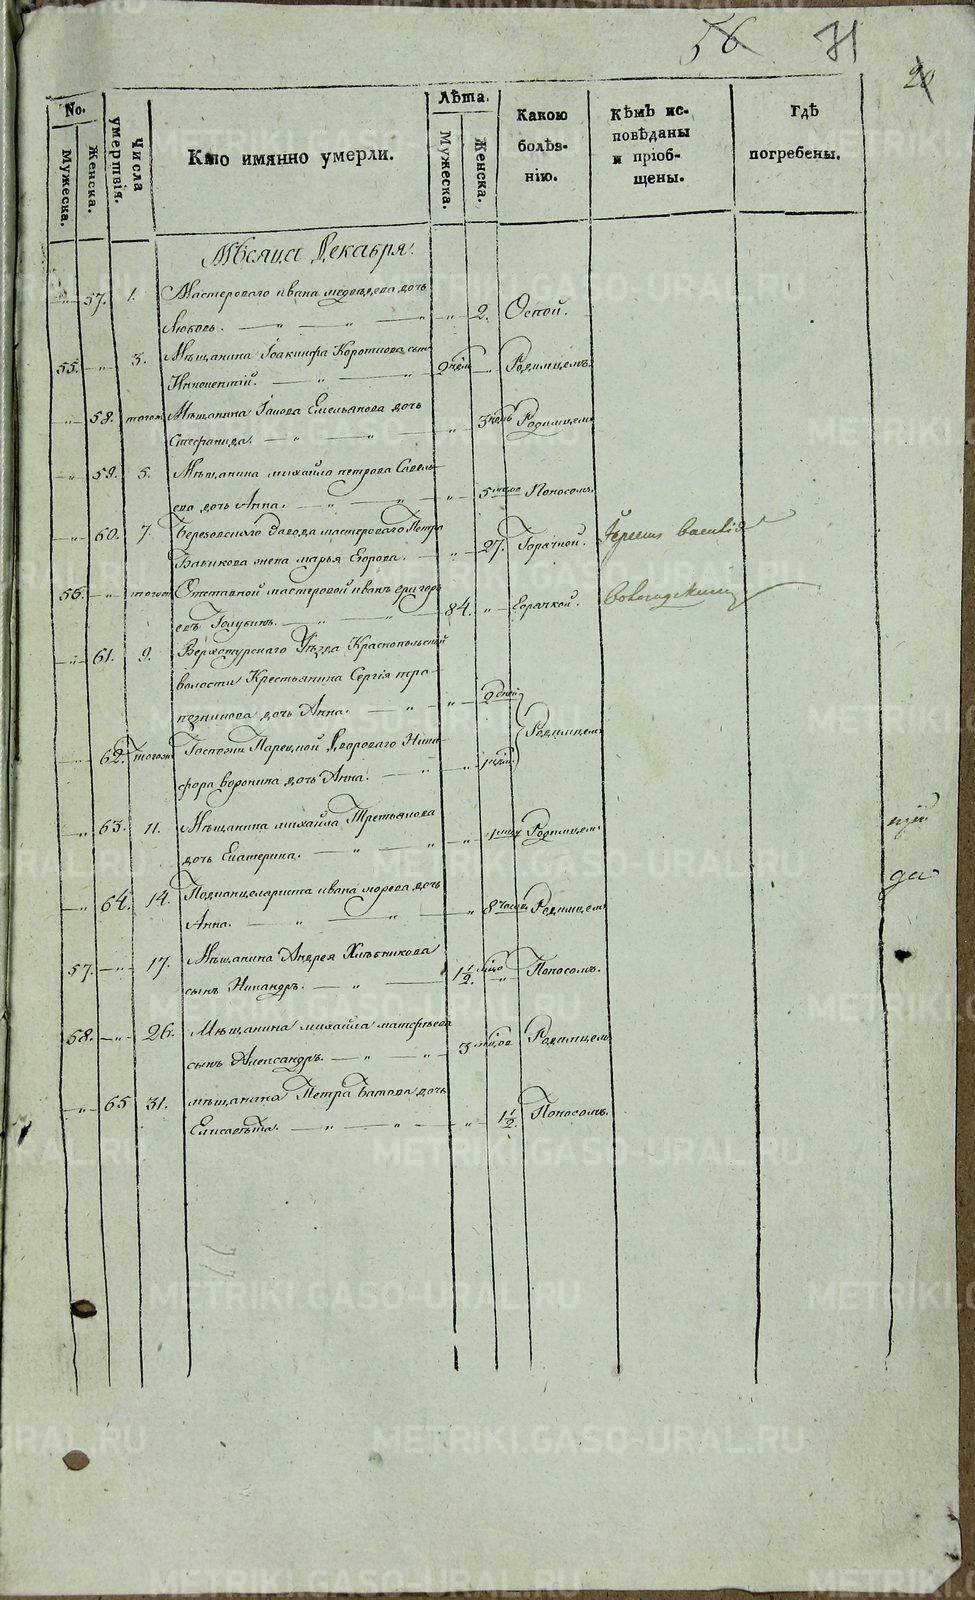 56 71
20
No.
Мужеска.
Женска.
Числа умертвія.
Кто имянно умерли.
Лѣта.
Мужеска.
Женска.
Какою болѣз-нію.
Кѣмъ ис-
повѣданы
и пріоб-
щены.
Гдѣ
погребены.
Мѣсяца Декабря.
„ 57. 1. Мастероваго ивана медведева дочь
Любовь. „ „ „ „ 2. Оспой.
55. „ 3. Мѣщанина Іоакинфа Короткова сынъ
Иннокентій. „ „ 2 „ Родимцемъ.
„ 58. тогож Мѣщанина Іакова Емельянова дочь
Стефанида. „ „ „ 3 Родимцемъ
„ 59. 5. Мѣщанина михайло петрова Савель-
ева дочь Анна. „ „ „ 5 мцов Поносомъ.
„ 60. 7. Березовскаго Завода мастероваго Петра
Бабикова жена марья Егорова. „ 27. Горячкой. Іереемъ Васильем
56. „ тогож Отставной мастеровой иванъ григорь
евъ Голубинъ. „ „ 84. „ Горячкой.
„ 61. 9. Верхотурскаго Уѣзда Краснопольской
волости Крестьянина Сергія тра-
пезникова дочь Анна. „ „ 2 дней
Родимцем
„ 62. тогож Госпожи Двороваго Ники-
фора воронина дочь Анна. „ „ 1
„ 63. 11. Мѣщанина михайла Третьякова
дочь Екатерина. „ „ „ 1 Родимцем
„ 64. 14. Подканцеляриста ивана дочь
Анна. „ „ „ 8 часов Родимцем
57. „ 17. Мѣщанина Андрея Хлѣбникова
сынъ Никандръ. „ 1 1/2. „ Поносомъ.
58. „ 26. Мѣщанина михайла матфѣева
сынъ Александръ. „ „ 3 мцов Родимцем
„ 65 31. мѣщанина Петра Батова дочь
Елисавѣта. „ „ „ 1 1/2. Поносомъ.